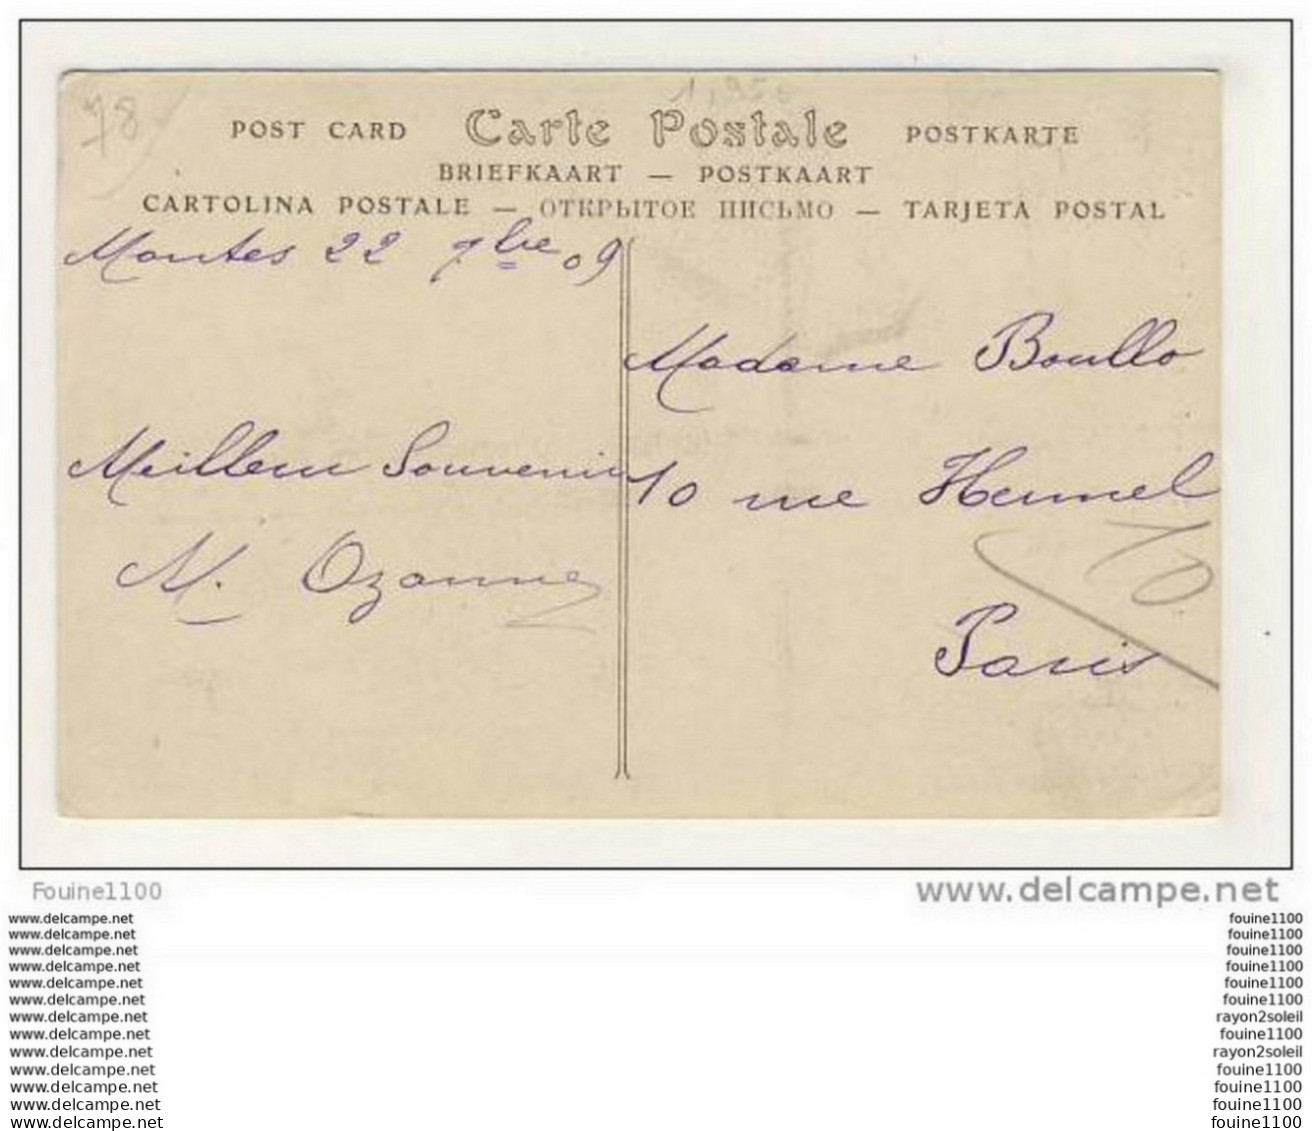 78
POST CARD Carte Postale POSTKARTE
BRIEFKAART — POSTKAART
CARTOLINA POSTALE — ОТКРЫТОЕ ПИСЬМО — TARJETA POSTAL
Mantes 22 7bre 09
Madame Boullo
Meilleur Souvenir
10 rue Hermel
M. Ozanne
Paris
Fouine1100
www.delcampe.net
www.delcampe.net fouine1100
www.delcampe.net fouine1100
www.delcampe.net fouine1100
www.delcampe.net fouine1100
www.delcampe.net fouine1100
www.delcampe.net fouine1100
www.delcampe.net rayon2soleil
www.delcampe.net fouine1100
www.delcampe.net rayon2soleil
www.delcampe.net fouine1100
www.delcampe.net fouine1100
www.delcampe.net fouine1100
www.delcampe.net fouine1100